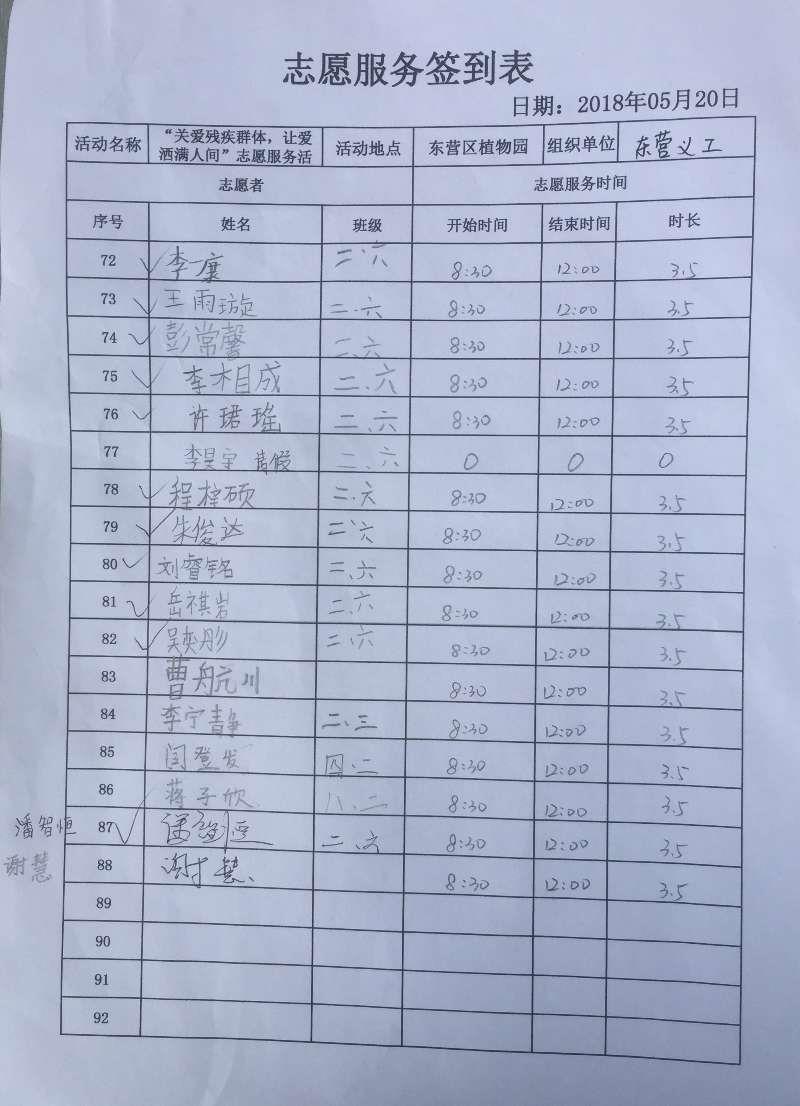 志愿服务签到表
日期：2018年05月20日
活动名称 “关爱残疾群体，让爱洒满人间”志愿服务活 活动地点 东营区植物园 组织单位 东营义工
志愿者 志愿服务时间
序号 姓名 班级 开始时间 结束时间 时长
72 李一康 二.六 8:30 12:00 3.5
73 王雨璇 二.六 8:30 12:00 3.5
74 彭常馨 二.六 8:30 12:00 3.5
75 李相成 二、六 8:30 12:00 3.5
76 许珺瑶 二、六 8:30 12:00 3.5
77 李昊宇 请假 二、六 0 0 0
78 程梓硕 二.六 8:30 12:00 3.5
79 朱俊达 二.六 8:30 12:00 3.5
80 刘睿铭 二、六 8:30 12:00 3.5
81 岳祺岩 二、六 8:30 12:00 3.5
82 吴奕彤 二.六 8:30 12:00 3.5
83 曹航川 8:30 12:00 3.5
84 李宁静 二、三 8:30 12:00 3.5
85 闫登发 四.二 8:30 12:00 3.5
86 蒋子欣 八.二 8:30 12:00 3.5
潘智恒 87 二、六 8:30 12:00 3.5
谢慧 88 谢慧 8:30 12:00 3.5
89
90
91
92